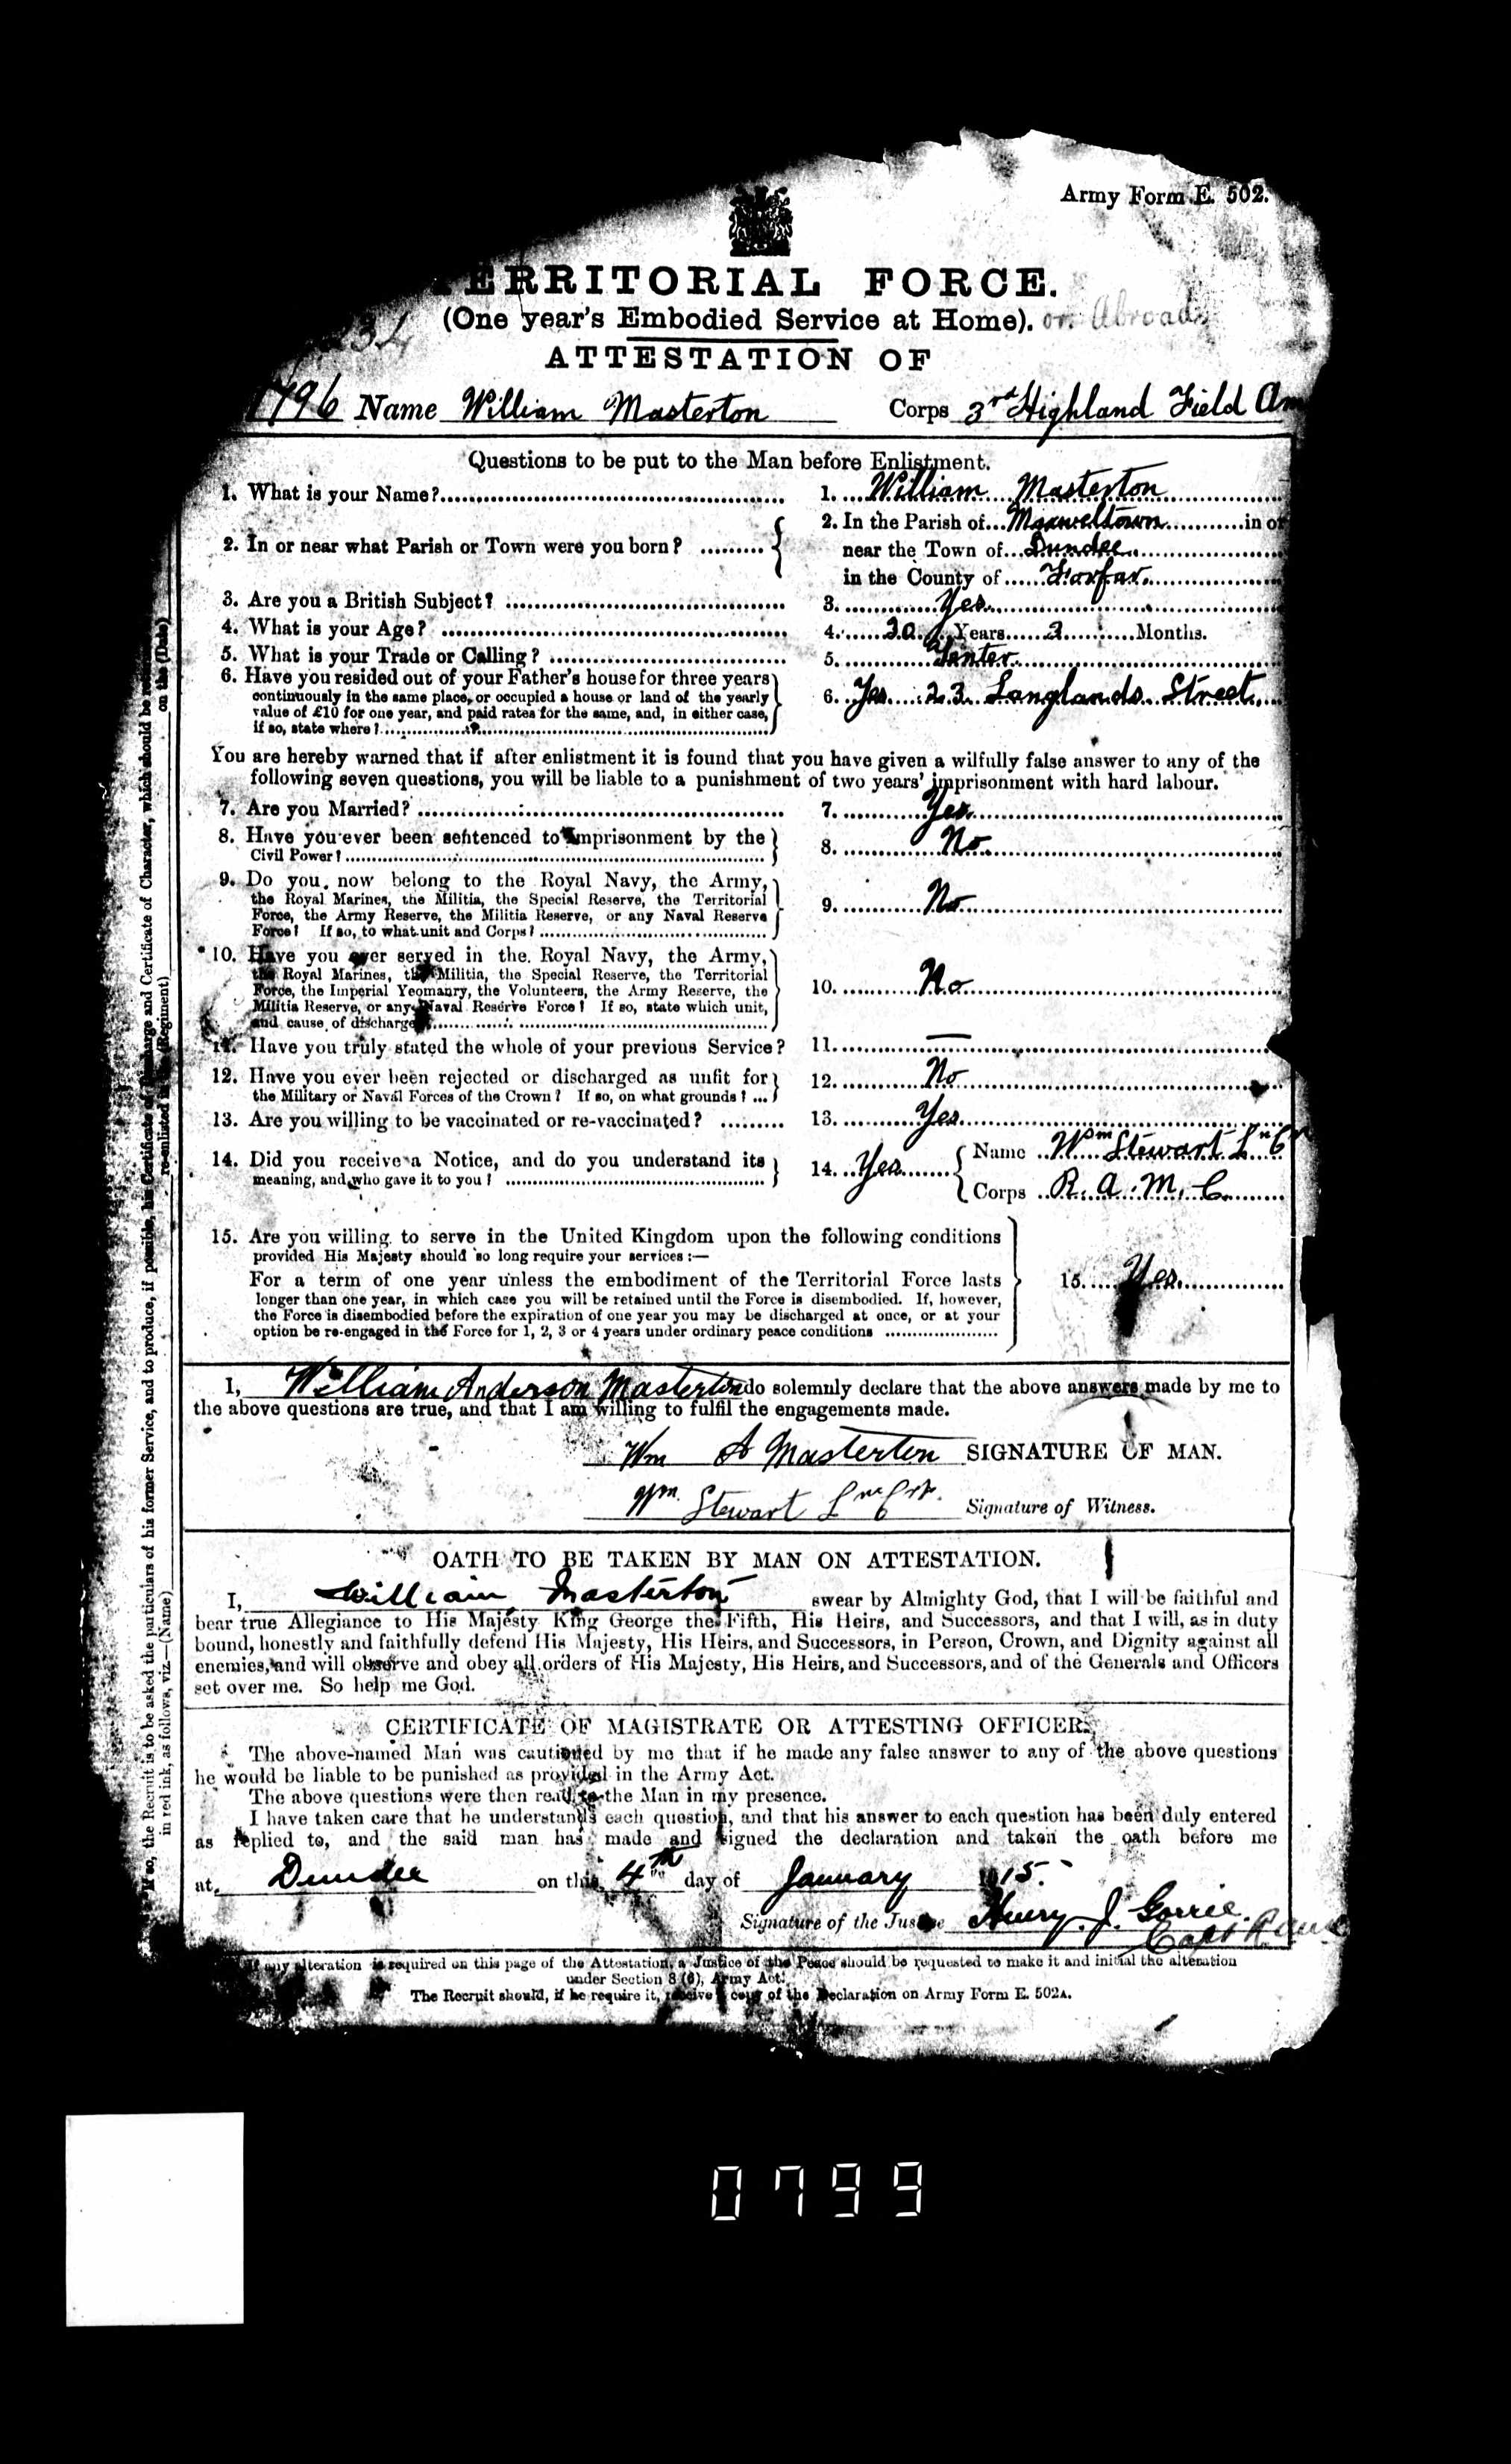 Army Form E. 502.
TERRITORIAL FORCE.
(One year's Embodied Service at Home). or Abroad
34
ATTESTATION OF
1796 Name William Masterton Corps 3rd Highland Field Am
Questions to be put to the Man before Enlistment.
1. What is your Name? 1. William Masterton
2. In or near what Parish or Town were you born? 2. In the Parish of Maxweltown in or
near the Town of Dundee
in the County of Forfar.
3. Are you a British Subject? 3. Yes
4. What is your Age? 4. 30 Years 2 Months.
5. What is your Trade or Calling? 5. Tenter
6. Have you resided out of your Father's house for three years
continuously in the same place, or occupied a house or land of the yearly
value of £10 for one year, and paid rates for the same, and, in either case,
if so, state where? 6. Yes 23 Langlands Street
You are hereby warned that if after enlistment it is found that you have given a wilfully false answer to any of the
following seven questions, you will be liable to a punishment of two years' imprisonment with hard labour.
7. Are you Married? 7. Yes
8. Have you ever been sentenced to imprisonment by the
Civil Power? 8. No
9. Do you now belong to the Royal Navy, the Army,
the Royal Marines, the Militia, the Special Reserve, the Territorial
Force, the Army Reserve, the Militia Reserve, or any Naval Reserve
Force? If so, to what unit and Corps? 9. No
*10. Have you ever served in the Royal Navy, the Army,
the Royal Marines, the Militia, the Special Reserve, the Territorial
Force, the Imperial Yeomanry, the Volunteers, the Army Reserve, the
Militia Reserve, or any Naval Reserve Force? If so, state which unit,
and cause of discharge 10. No
11. Have you truly stated the whole of your previous Service? 11. —
12. Have you ever been rejected or discharged as unfit for
the Military or Naval Forces of the Crown? If so, on what grounds? ... 12. No
13. Are you willing to be vaccinated or re-vaccinated? 13. Yes
14. Did you receive a Notice, and do you understand its
meaning, and who gave it to you? 14. Yes Name Wm Stewart Ln Cr
Corps R. A. M. C.
15. Are you willing to serve in the United Kingdom upon the following conditions
provided His Majesty should so long require your services:—
For a term of one year unless the embodiment of the Territorial Force lasts
longer than one year, in which case you will be retained until the Force is disembodied. If, however,
the Force is disembodied before the expiration of one year you may be discharged at once, or at your
option be re-engaged in the Force for 1, 2, 3 or 4 years under ordinary peace conditions 15. Yes
I, William Anderson Masterton do solemnly declare that the above answers made by me to
the above questions are true, and that I am willing to fulfil the engagements made.
Wm A Masterton SIGNATURE OF MAN.
Wm Stewart Lne Crp. Signature of Witness.
OATH TO BE TAKEN BY MAN ON ATTESTATION.
I, William Masterton swear by Almighty God, that I will be faithful and
bear true Allegiance to His Majesty King George the Fifth, His Heirs, and Successors, and that I will, as in duty
bound, honestly and faithfully defend His Majesty, His Heirs, and Successors, in Person, Crown, and Dignity against all
enemies, and will observe and obey all orders of His Majesty, His Heirs, and Successors, and of the Generals and Officers
set over me. So help me God.
CERTIFICATE OF MAGISTRATE OR ATTESTING OFFICER.
The above-named Man was cautioned by me that if he made any false answer to any of the above questions
he would be liable to be punished as provided in the Army Act.
The above questions were then read to the Man in my presence.
I have taken care that he understands each question, and that his answer to each question has been duly entered
as replied to, and the said man has made and signed the declaration and taken the oath before me
at Dundee on this 4th day of January 1915.
Signature of the Justice Henry. J. Gorrie.
Capt
If any alteration is required on this page of the Attestation, a Justice of the Peace should be requested to make it and initial the alteration
under Section 8 (6), Army Act.
The Recruit should, if he require it, receive a copy of the Declaration on Army Form E. 502A.
*If so, the Recruit is to be asked the particulars of his former Service, and to produce, if possible, his Certificate of Discharge and Certificate of Character, which should be
in red ink, as follows, viz.—(Name) re-enlisted in the (Regiment) on the (Date)
0799